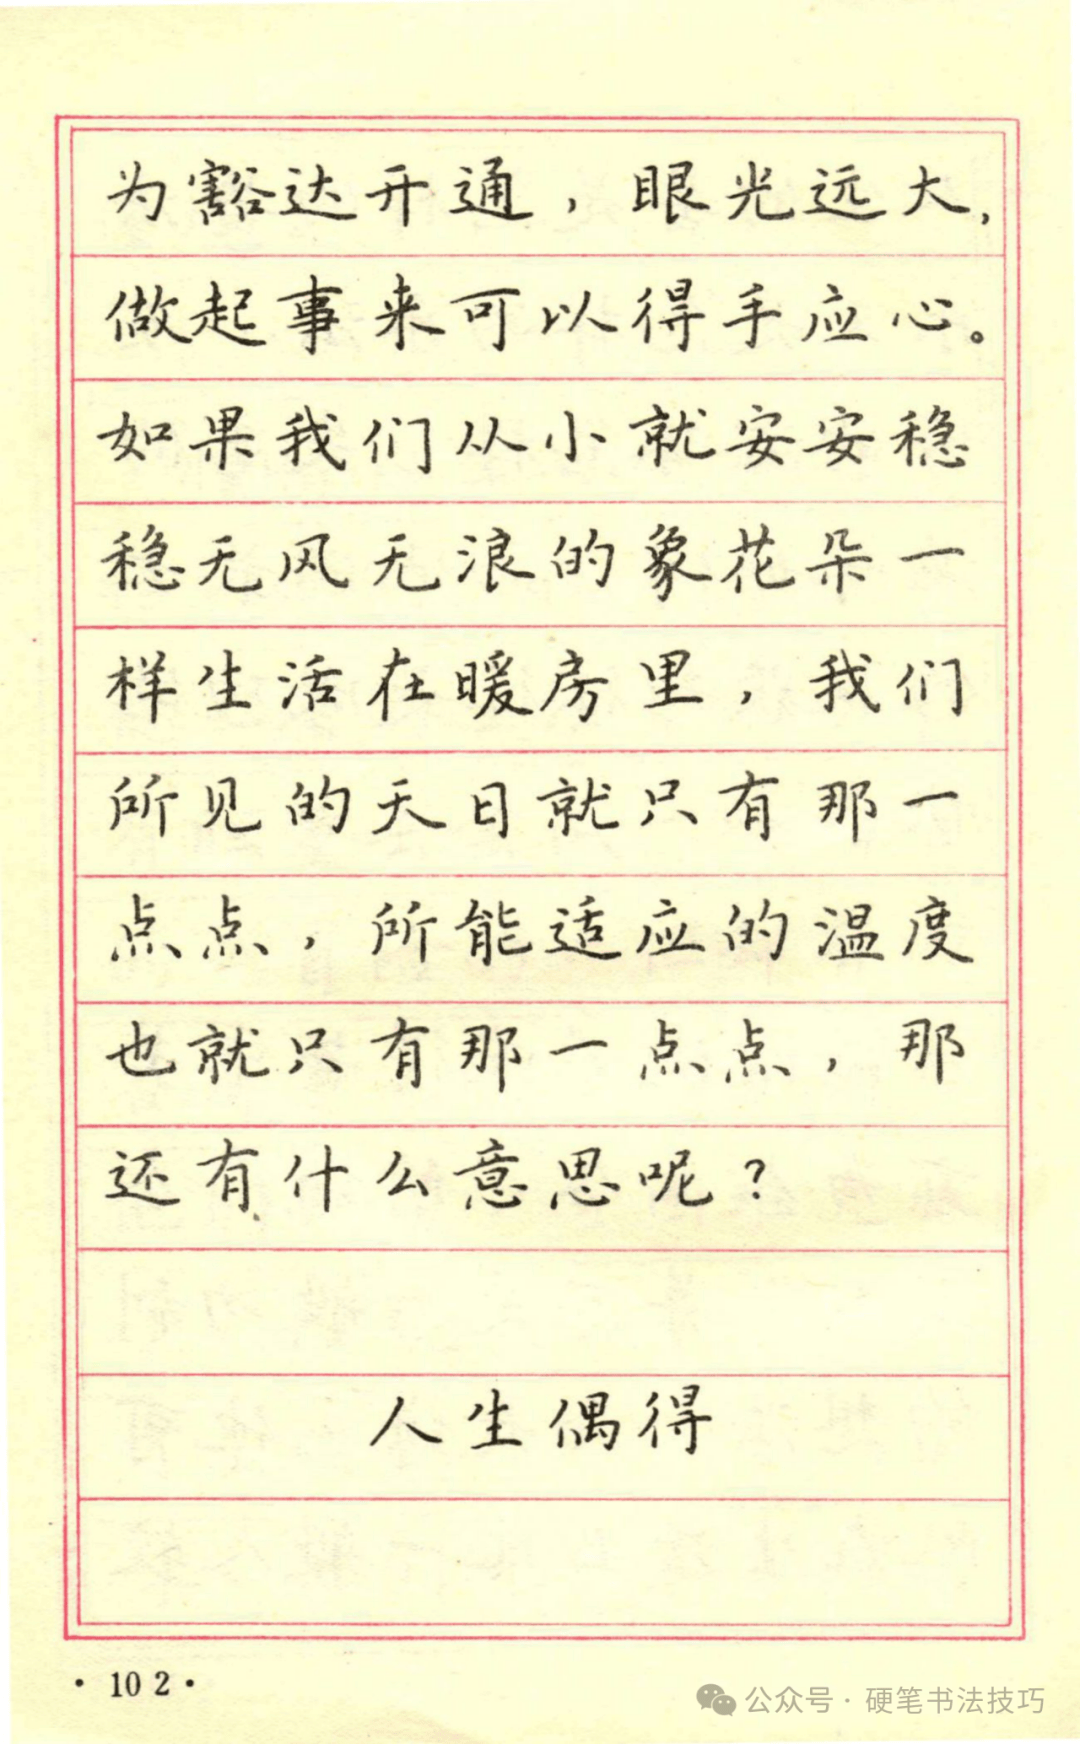 为豁达开通，眼光远大，
做起事来可以得手应心。
如果我们从小就安安稳
稳无风无浪的象花朵一
样生活在暖房里，我们
所见的天日就只有那一
点点，所能适应的温度
也就只有那一点点，那
还有什么意思呢？
人生偶得
·102·
公众号·硬笔书法技巧